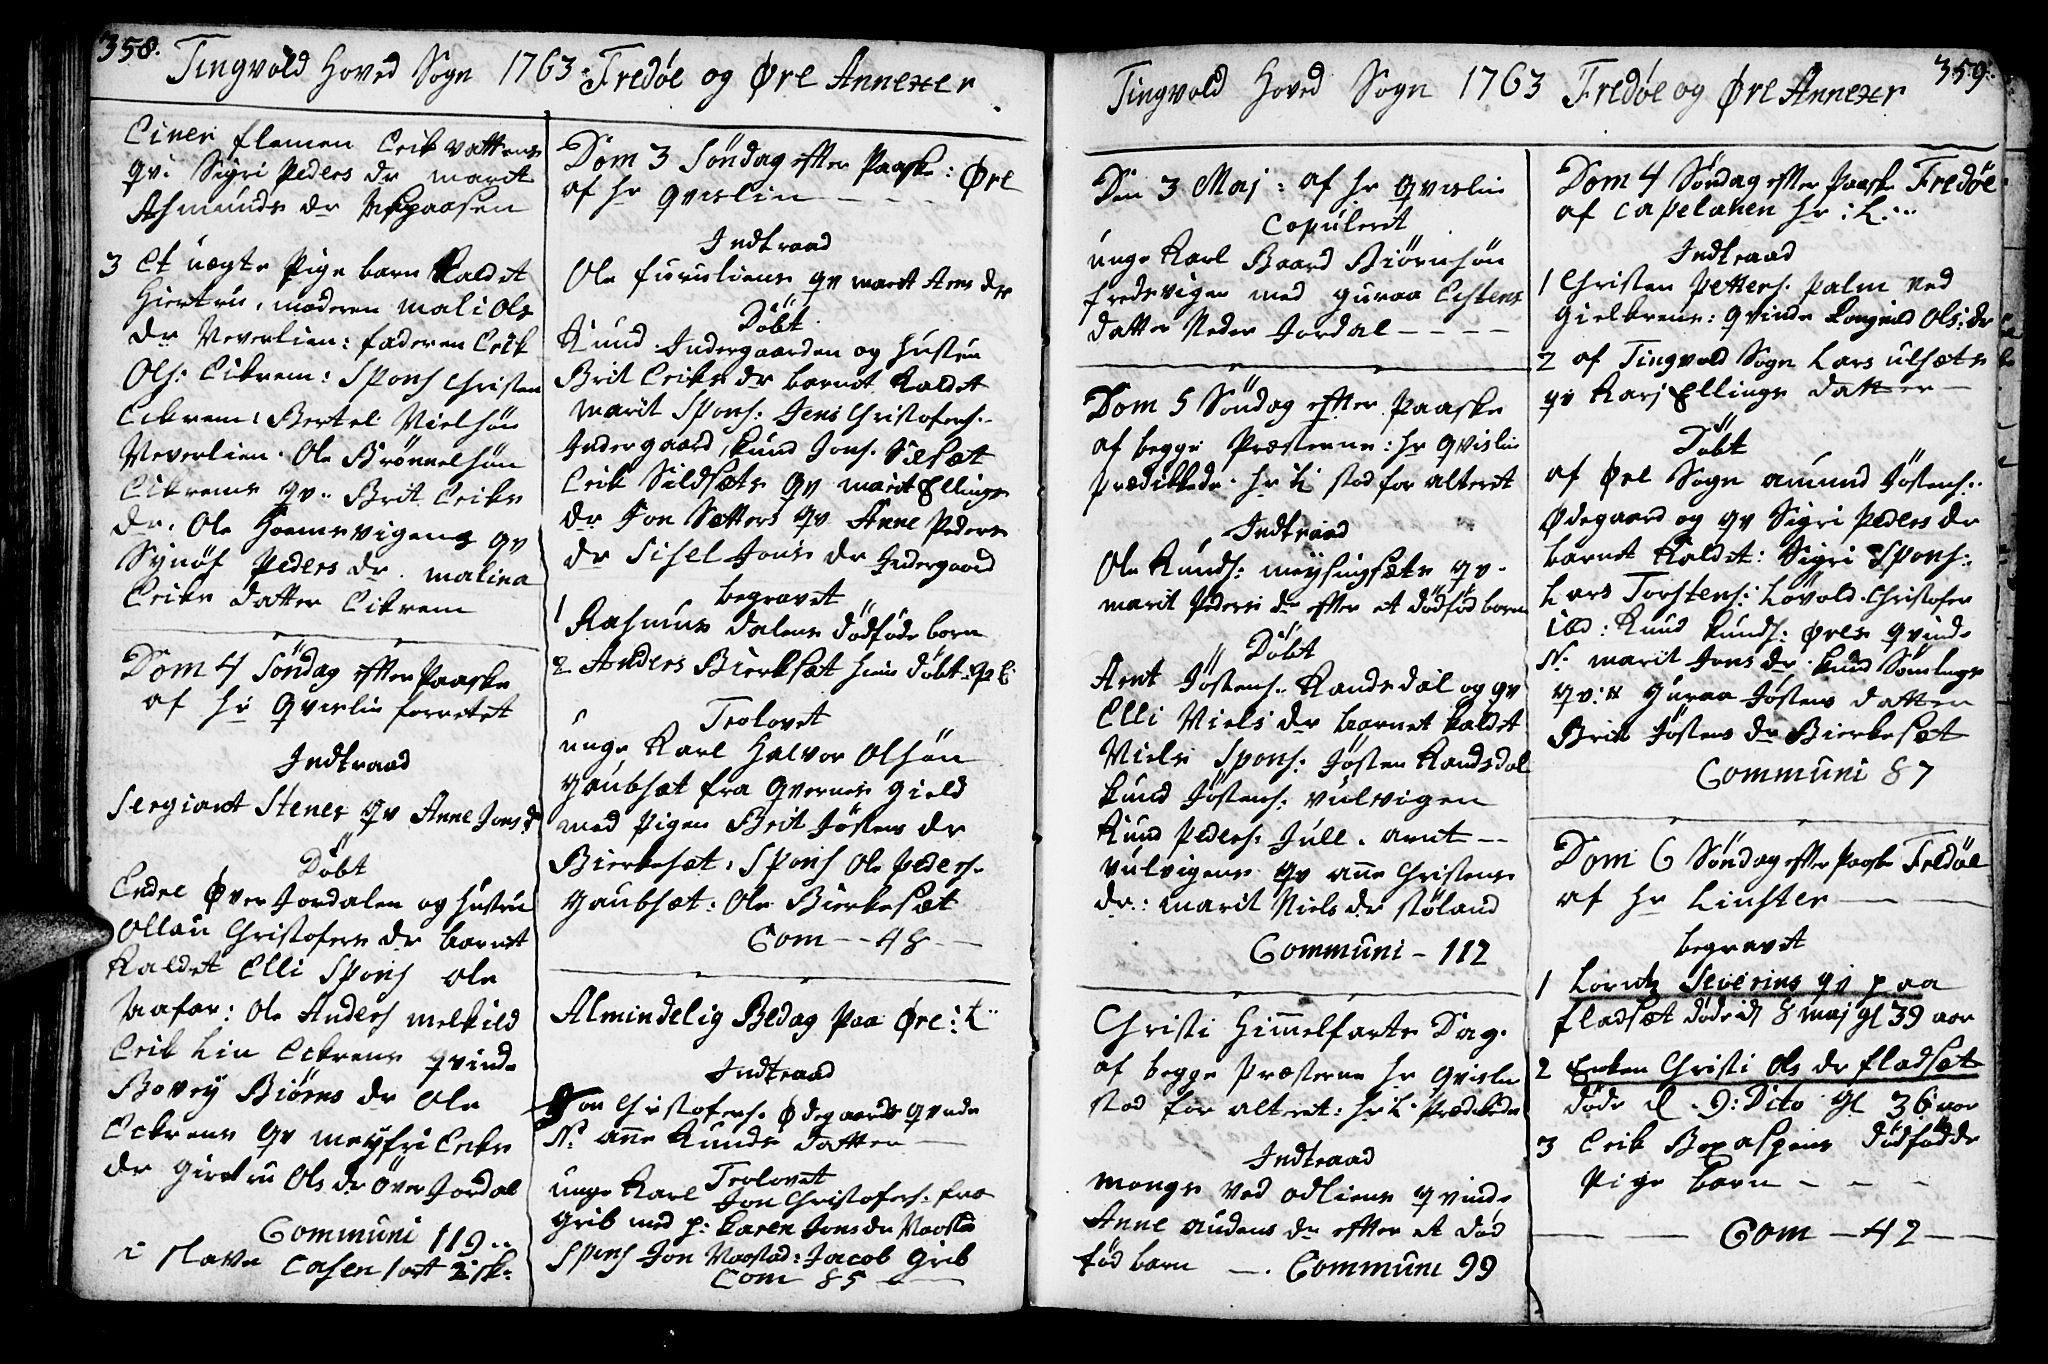 358.
Tingvold Hoved Sogn 1763 Fredøe og Øre Annexer
Einer flemen Erik vattens
qv: Sigri Peders dr marit
Asmunds dr
3 Et uegte Pige barn Kaldet
Giertru, moderen mali Ols
dr Neverlien: faderen Erik
Ols: Eikrem: Spons Christen
Eikrem: Bertel Nielsøn
Neverlien. Ole Brønnelsøn
Eikrems qv.. Brit Eriks
dr. Ole Hoemsvigens qv
Synøf Peders dr. malina
Eriks datter Eikrem
Dom 4 Søndag efter Paaske
af Hr Qvislin forrettet
Indtraad
Sergiant Stener qv Anne Jons dr
Døbt
Endre Øver Jordalen og Hustru
Ollau Christofers dr barnet
Kaldet Elli Spons Ole
Aafar: Ole Anders melkild
Erik Lin Eckrens qvinde
Bovey Biørns dr Ole
Eckrens qv meyfri Eriks
dr Giertru Ols dr Øver Jordal
Communi 119..
i Stavn Casen sat 2 sk:
Dom 3 Søndag efter Paaske: Øre
af Hr Qvislin - - - -
Indtraad
Ole furuliens qv marit Arns dr
Døbt
Knud Indergaarden og Hustru
Brit Eriks dr barnet Kaldet
marit Spons: Jens Christofers:
Indergaard, Knud Jons. Silsæt
Erik Sildsæts qv marit Ellings
dr Jon Sætters qv Anne Peders
dr Sisel Jons dr Indergaard
begravet
1 Rasmus Dalens dødføde barn
2 Anders Bierksæt hiem døbt
Trolovet
unge Karl Halvor Olsøn
Gaubsæt fra Qvernes Gield
med Pigen Brit Jøstens dr
Bierkesæt: Spons Ole Peders.
Gaubsæt: Ole Bierkesæt
Com - - 48 -
Almindelig Bedag Paa Øre: L..
Indtraad
Jon Christofers. Ødegaards qvinde
N: anne Knuds datter -
Trolovet
unge Karl Jon Christofers: fra
Grib med p: Karen Jons dr Vaagstad
Spons Jon Vaagstad: Jacob Grib
Com 85 -
359.
Tingvold Hoved Sogn 1763 Fredøe og Øre Annexer
Den 3 Maj: af Hr Qvislin
Copuleret
unge Karl Baard Biørnsøn
fredsvigen med Guraa Estens
datter Neder Jordal - - - -
Dom 5 Søndag efter Paaske
af begge Præsterne: Hr Qvislin
Prædikede. Hr L stod for alteret
Indtraad
Ole Knuds: meysingsæts qv.
marit Peders dr efter et dødfød barn
Døbt
Arnt Jøstens. Kandsdal og qv
Elli Niels dr barnet kaldet
Niels Spons: Jøsten Kandsdal
Knud Jøstens: vulvigen
Knud Peders: Jull. arnt - -
vulvigens qv anne Christens
dr: marit Niels dr støland
Communi - 112
Christi Himmelfarts Dag.
af begge Præsterne Hr Qvislin
stod for alteret: Hr L: Prædikede
Indtraad
mongs ved odliens qvinde
Anne audens dr efter et død
fød barn - . Communi 99
Dom 4 Søndag efter Paaske Fredøe
af Capelanen Hr: L:..
Indtraad
1 Christen Petters: Palm ved
Gielbrens: qvinde Ragnild Ols: dr
2 af Tingvold Sogn Lars ulsæts
qv Karj Ellings datter -
Døbt
af Øre Sogn amund Jøstens:
Ødegaard og qv Sigri Peders dr
barnet Kaldet: Sigri Spons:
Lars Torstens: Løvold. Christofer
ied: Knud Knuds: Øres qvinde
N: marit Jons dr. Knud Sømlings
qv: N Guraa Jøstens datter
Brit Jøstens dr Bierkesæt
Communi 87
Dom 6 Søndag efter Paaske Fredøe
af Hr Linster - -
begravet
1 Lorntz Severins qv paa
fladsæt døde d 8 maj gl 39 aar
2 Enken Christi Ols dr fladsæt
døde d. 9: Dito gl 36 aar
3 Erik Bøxaspens dødfødde
Pige barn - - -
- - Com - 42 - -